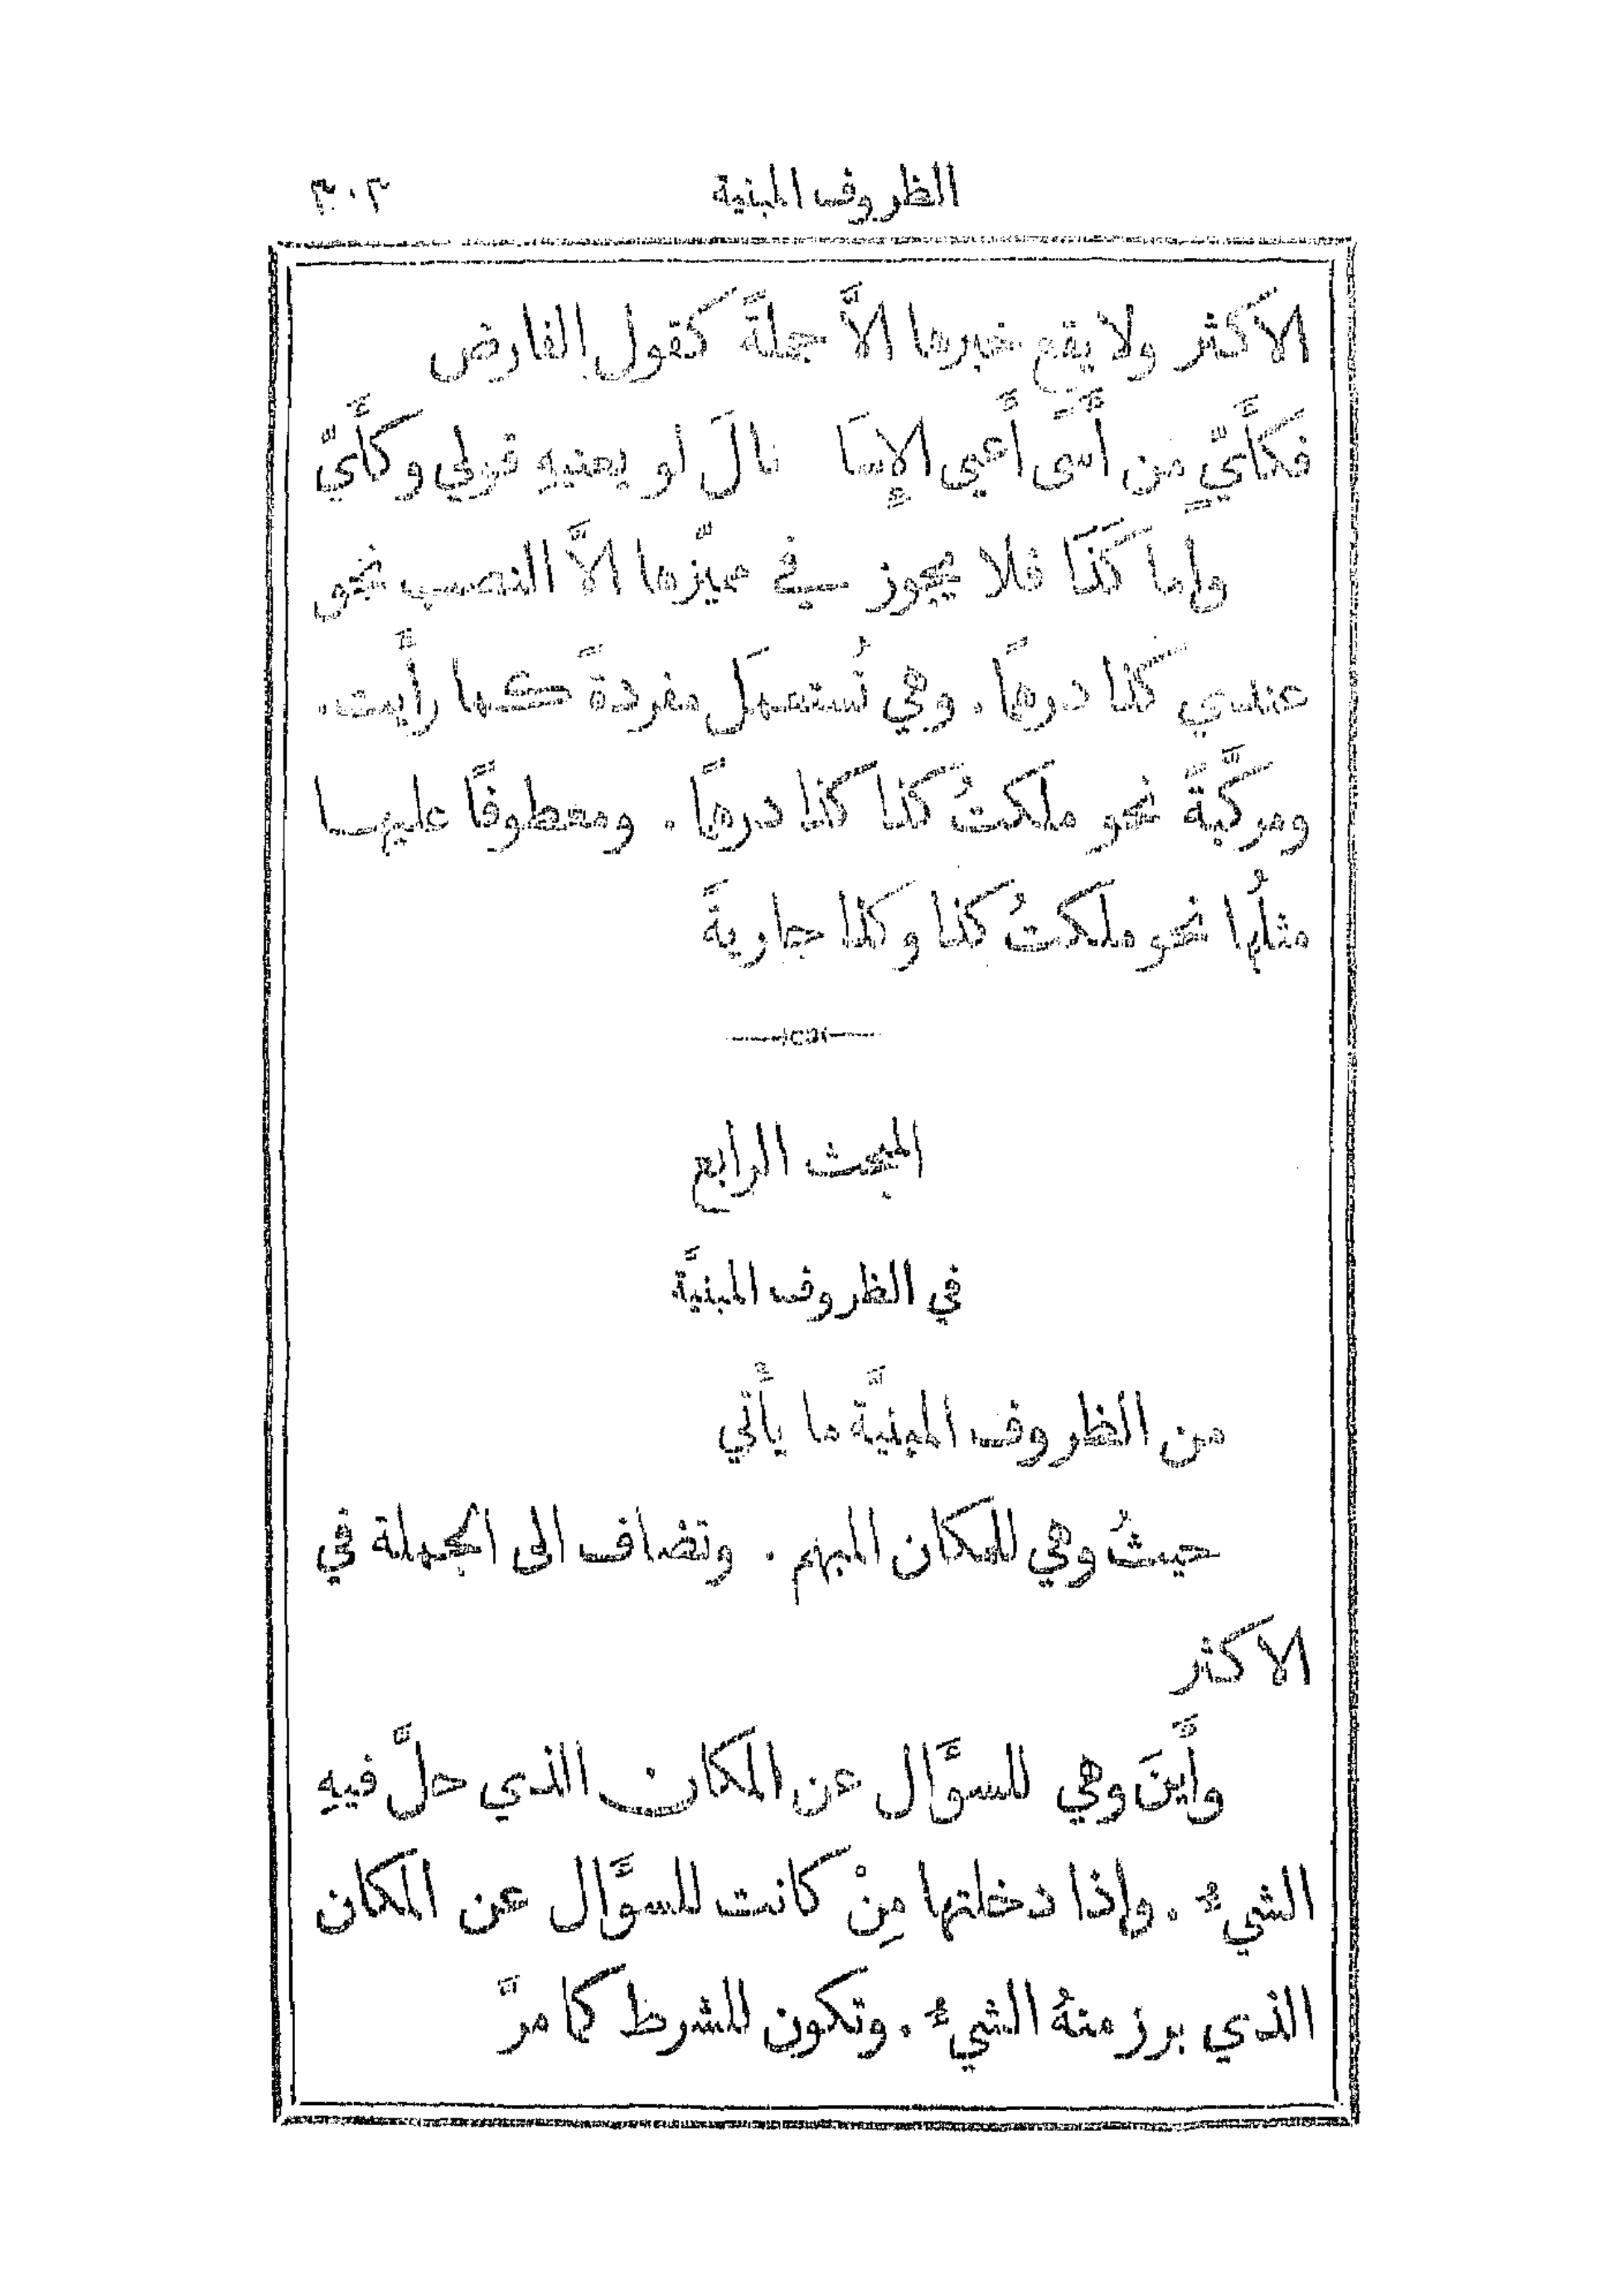 الظروف المبنية ٣٠٣
الاكثر ولا يقع خبرها الاَّ جملةً كقول الفارض
فكأَيٍّ من أَسًى أَعيى الإِسَا نالَ لو يعنيهِ قولي وكأَيّ
وأَما كَذَا فلا يجوز في مميّزها الاَّ النصب نحو
عندي كذا درهمًا. وهي تُستعمَل مفردةً كما رأَيت.
ومركَّبةً نحو ملكتُ كذا كذا درهمًا. ومعطوفًا عليها
مثلُها نحو ملكتُ كذا وكذا جاريةً
المبحث الرابع
في الظروف المبنيَّة
من الظروف المبنيَّة ما يأتي
حيثُ وهي للمكان المبهم. وتضاف الى الجملة في
الاكثر
وأَينَ وهي للسوَّال عن المكان الذي حلَّ فيهِ
الشيءُ. واذا دخلتها مِنْ كانت للسوَّال عن المكان
الذي برز منهُ الشيءُ. وتكون للشرط كما مرَّ